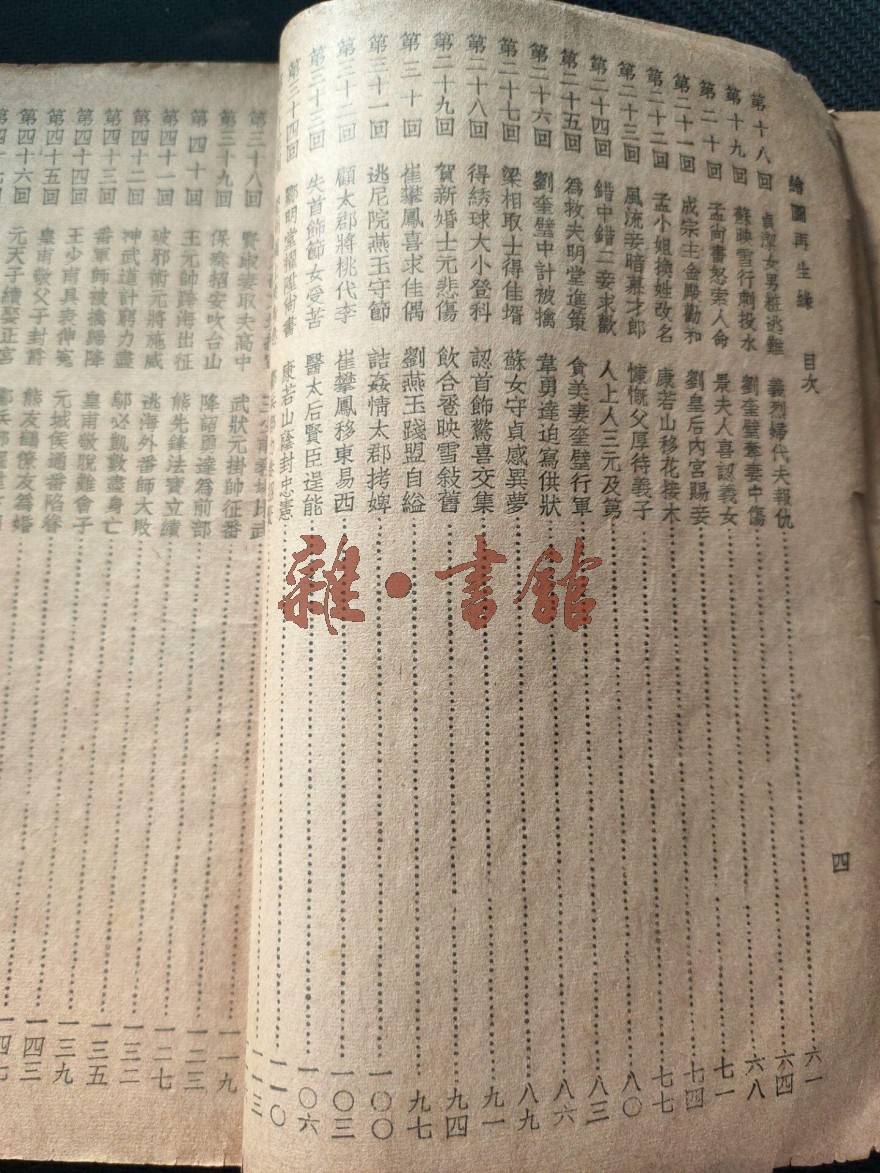 繪圖再生緣 目次 四
第十八回 貞潔女男粧逃難 義烈婦代夫報仇 六一
第十九回 蘇映雪行刺投水 劉奎璧奪妻中傷 六四
第二十回 孟尚書怒索人命 景夫人喜認義女 六八
第二十一回 成宗主金殿勸和 劉皇后內宮賜妾 七一
第二十二回 孟小姐換姓改名 康若山移花接木 七四
第二十三回 風流妾暗慕才郎 慷慨父厚待義子 七七
第二十四回 錯中錯二妾求歡 人上人三元及第 八〇
第二十五回 爲救夫明堂進策 貪美妻奎璧行軍 八三
第二十六回 劉奎璧中計被擒 韋勇達迫寫供狀 八六
第二十七回 梁相取士得佳壻 蘇女守貞感異夢 八九
第二十八回 得綉球大小登科 認首飾驚喜交集 九一
第二十九回 賀新婚士元悲傷 飲合卺映雪敍舊 九四
第三十回 崔攀鳳喜求佳偶 劉燕玉踐盟自縊 九七
第三十一回 逃尼院燕玉守節 詰姦情太郡拷婢 一〇〇
第三十二回 顧太郡將桃代李 崔攀鳳移東易西 一〇三
第三十三回 失首飾節女受苦 醫太后賢臣逞能 一〇六
第三十四回 酈明堂擢陞尚書 康若山廕封忠憲 一一〇
一一三
第三十八回 賢淑妻取夫高中 一一九
第三十九回 保殘招安吹台山 武狀元掛帥征番
第四十回 王元帥跨海出征 降詔勇達爲前部 一二三
第四十一回 破邪術元將施威 熊先鋒法寶立績 一二七
第四十二回 神武道計窮力盡 逃海外番師大敗 一三二
第四十三回 番軍師被擒歸降 鄔必凱數盡身亡 一三五
第四十四回 王少甫具表伸冤 皇甫敬脫難會子 一三九
第四十五回 皇甫敬父子封爵 元城侯通番陷眷 一四三
第四十六回 元天子續娶正宮 熊友鶴僚友爲婚 一四七